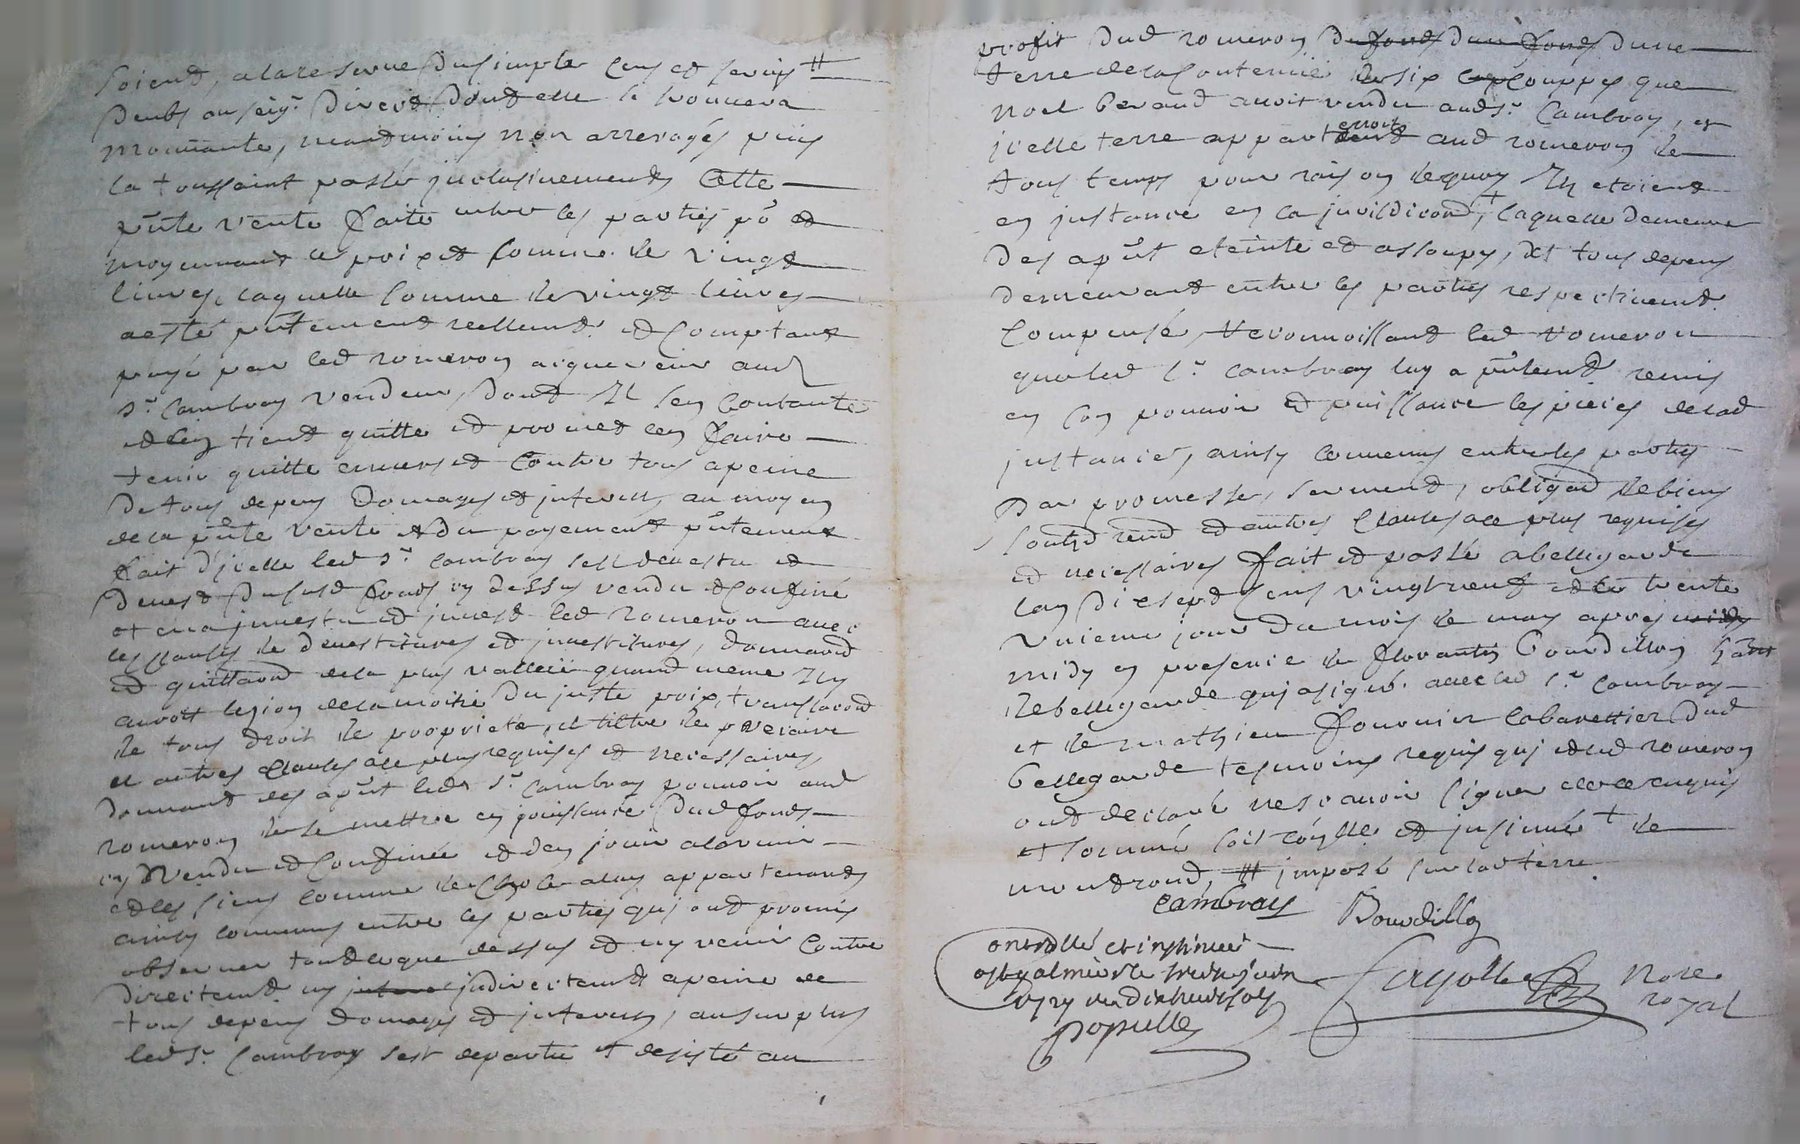 soient, a la reserve du simple cens et servis #
deubs au seigr. direct dont elle se trouvera
mouvante, neantmoins non arreragés puis
la toussaint passé jnclusivement, Cette
pnte vente faite entre les parties po et
moyennant le prix et somme de vingt
livres, laquelle somme de vingt livres
a esté pntement reellemt. et comptant
payé par led romeron acquereur aud
sr. Cambray vendeur, dont Il s'en contante
et l'en tient quitte et promet l'en faire
tenir quitte envers et Contre tous a peine
de tous depens domages et jnterests, au moyen
de la pnte vente et du payement pntement
fait d'jcelle led sr. Cambray s'est devestu et
devest dususd fonds cy dessus vendu et confiné
et en a jnvestu et jnvest led romeron avec
les clauses de devestitures et jnvestitures, donnand
et quittand de la plus valleüe quand meme Il y
auroit lezion de la moitié du juste prix, transferand
de tous droit de proprieté, et tiltre de precaire
et autres clauses a ce plus requises et necessaires,
donnant des a pnt. led sr. Cambray pouvoir aud
romeron de se mettre en jouissance dud fonds
cy vendu et confinée et d'en jouir a l'avenir
et les siens comme de chose a luy appartenand,
ainsy convenu entre les parties quj ont promis
observer tout ce que dessus et n'y venir contre
directemt. ny jndirectemt a peine de
tous depens domages et jnterests, au surplus
led sr. Cambray s'est departie et desisté au
profit dud romeron du fonds d'un fonds d'une
terre de la Contenüe de six coupées que
noel beraud avoit vendu aud sr. Cambray, et
jcelle terre appartenoit aud romeron de
tous temps pour raison de quoy Ils etoient
en jnstance en la jurisdicond, + laquelle demeure
des a pnt eteinte et assoupy, et tous depens
demeurant entre les parties respectivemt.
Compensé, Reconnoissant led romeron
que led sr. Cambray luy a pntemt remis
en son pouvoir et puissance les pieces de lad
jnstance, ainsy convenu entre les parties
Par promesse, serment, obligaond de biens
et autres clauses a ce plus requises
et necessaires fait et passé a bellegarde
l'an dix sept cens vingt neuf et le trente
vnieme jour du mois de may apres midy
midy en presence de florantin Bourdillon
de bellegarde quj a signé. avec led sr. Cambray
et de mathieu fournier cabarettier dud
bellegarde tesmoins requis quj et led romeron
ont declaré ne scavoir signer de ce enquis
et sommé soit controllé. et jnsinué + de
montrond, # jmposé sur lad terre.
Cambray Bourdillon
controllé et insinué
a st galmier le
reçu
popuelle
fayolle Nore
royal